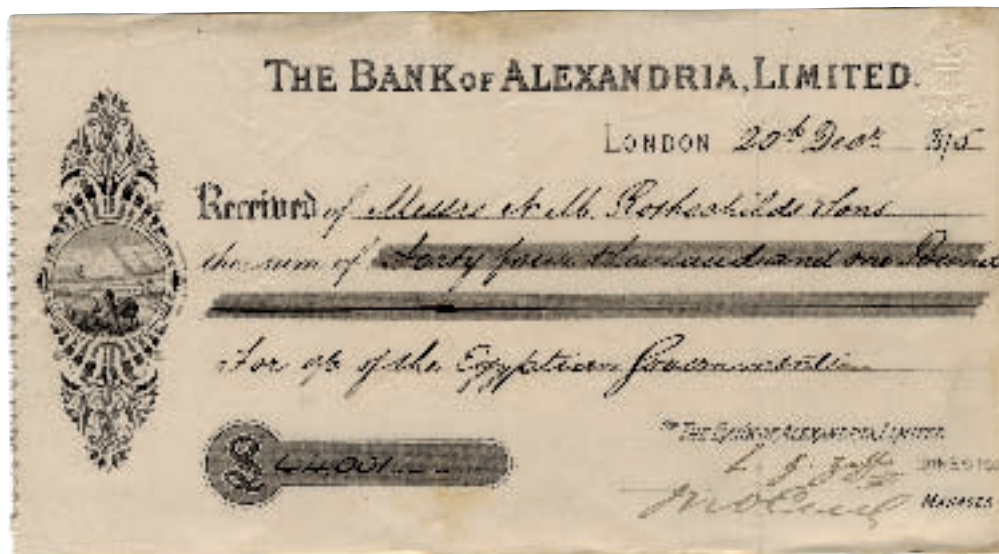 THE BANK OF ALEXANDRIA, LIMITED.
LONDON 20th Decr 1875
Received of Messrs N. M. Rothschilds Sons
the sum of Forty four thousand and one Pounds
For a/c of the Egyptian Government
£ 44,001
For THE BANK OF ALEXANDRIA, LIMITED.
DIRECTOR
MANAGER